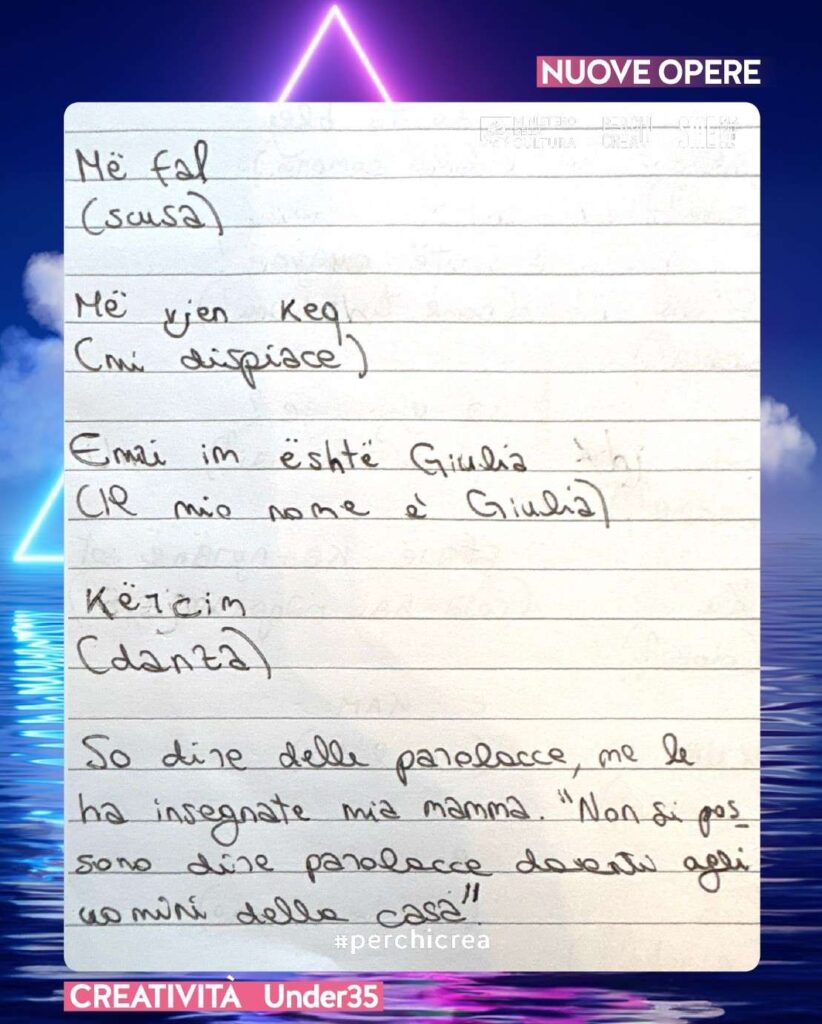 NUOVE OPERE
CULTURA
Më fal
(scusa)
Më vjen keq.
(mi dispiace)
Emri im është Giulia
(Il mio nome è Giulia)
Kërcim
(danza)
So dire delle parolacce, me le
ha insegnate mia mamma. "Non si pos
sono dire parolacce davanti agli
uomini della casa".
#perchicrea
CREATIVITÀ Under35